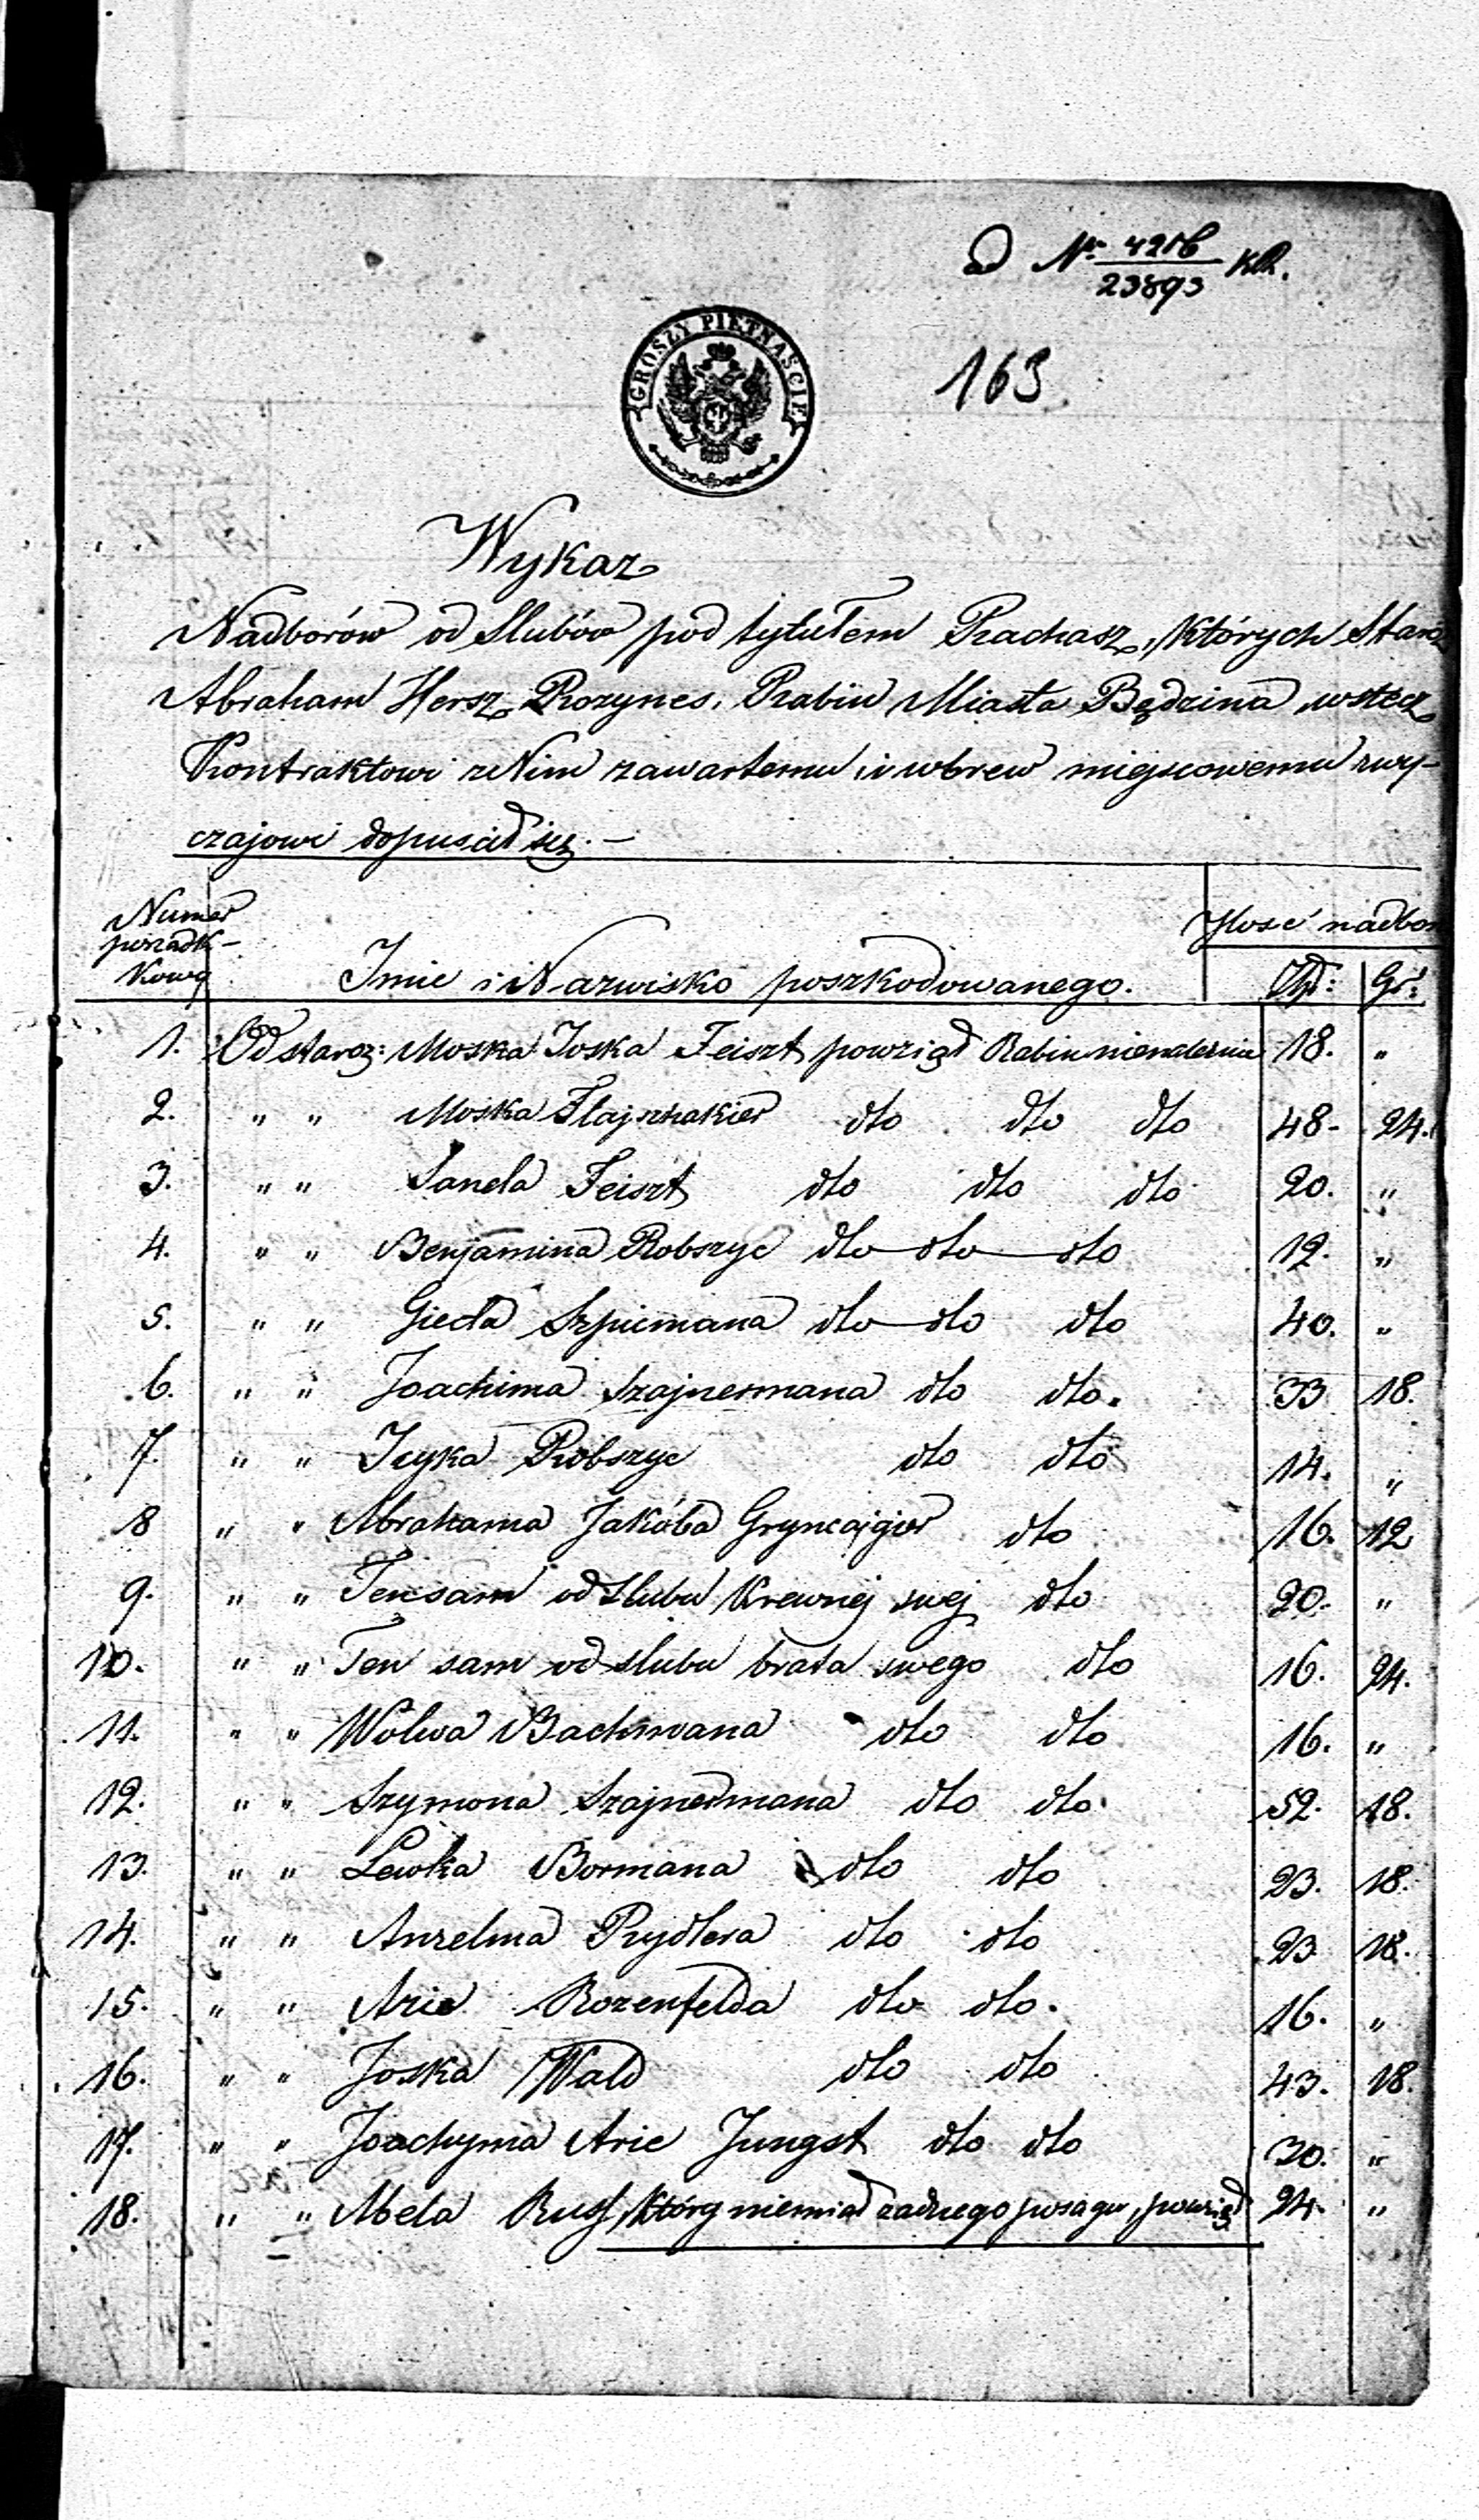 ad Nr 4216
23893 KR.
163
GROSZY PIĘTNAŚCIE
Wykaz
Nadborów od Slubów pod tytułem Rachasz, których Staroz
Abraham Hersz Rozynes, Rabin Miasta Będzina, wstecz
Kontraktowi z Nim zawartemu i wbrew miejscowemu zwy-
czajowi dopuścił się. —
Numer
porządk-
kowy
Ilość nadbor
Imie i Nazwisko poszkodowanego.
Złp: Gr:
1. Od staroz: Moska Joska Feiszt powziął Rabin nienależnie 18. "
2. " " Moska Flajszhakier dto dto dto 48- 24.
3. " " Sanela Feiszt dto dto dto 20. "
4. " " Benjamina Robszyc dto dto dto 12. "
5. " " Giecla Szpiemana dto dto dto 40. "
6. " " Joachima Szajnermana dto dto. 33 18.
7. " " Icyka Robszyc dto dto 14. "
8 " " Abrahama Jakóba Gryncajgier dto 16. 12
9. " " Tensam od slubu Krewnej swej dto 20. "
10. " " Ten sam od slubu brata swego dto 16. 24.
11. " " Wolwa Bachmana dto dto 16. "
12. " " Szymona Szajnermana dto dto 52. 18.
13. " " Lewka Bormana dto dto 23. 18.
14. " " Anzelma Rydlera dto dto 23 18.
15. " " Arie Rozenfelda dto dto. 16. "
16. " " Joska Wald dto dto 43. 18.
17. " " Joachyma Arie Jungst dto dto 30. "
18. " " Mela Rus, który niemiał żadnego posagu, powziął 24. "